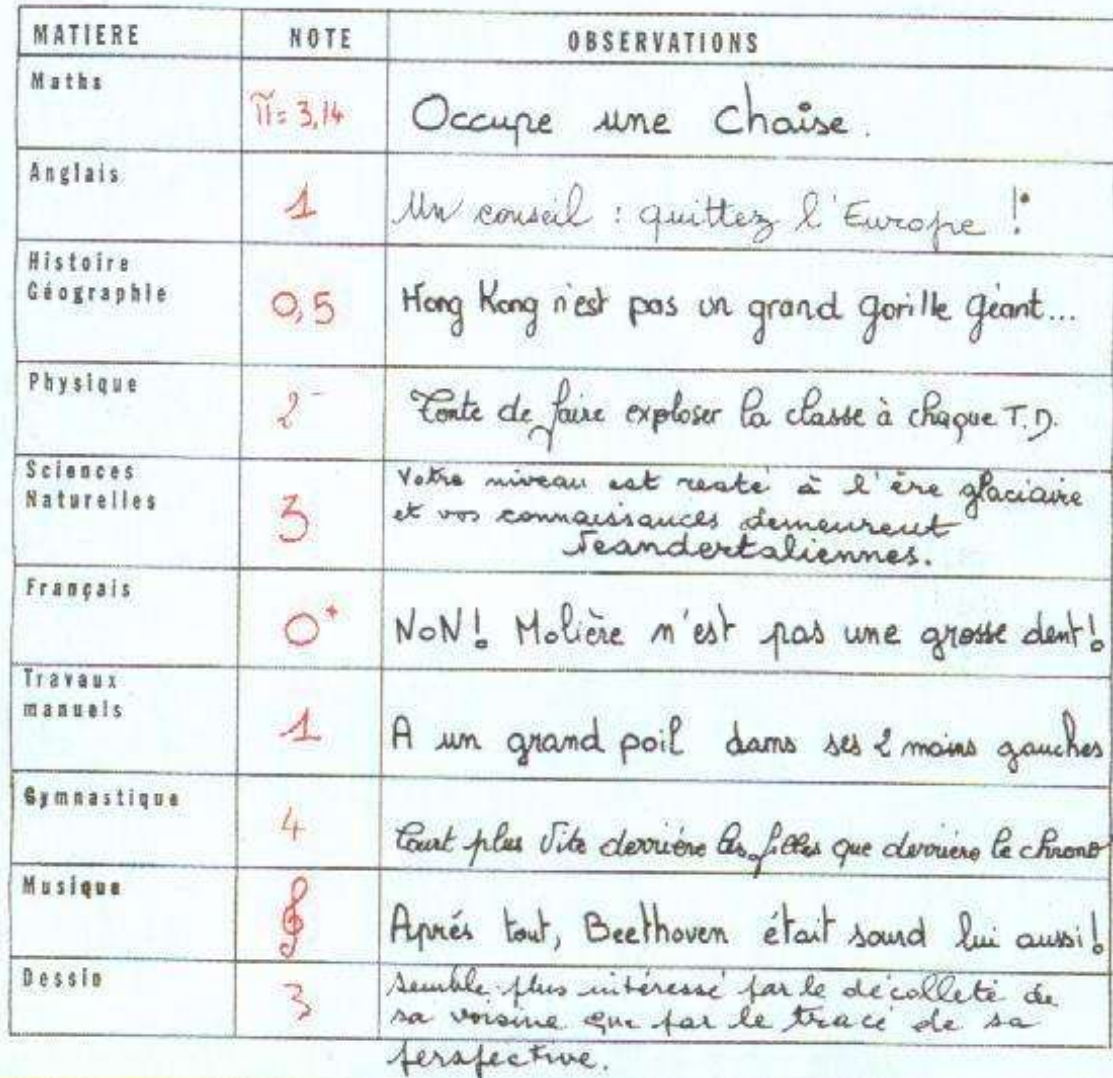 MATIERE NOTE OBSERVATIONS
Maths π = 3,14 Occupe une chaise.
Anglais 1 Un conseil : quittez l'Europe !
Histoire
Géographie 0,5 Hong Kong n'est pas un grand gorille géant...
Physique 2- Tente de faire exploser la classe à chaque T.D.
Sciences
Naturelles 3 Votre niveau est resté à l'ère glaciaire
et vos connaissances demeurent
Neandertaliennes.
Français 0+ NoN! Molière n'est pas une grosse dent!
Travaux
manuels 1 A un grand poil dans ses 2 mains gauches
Gymnastique 4 Court plus vite derrière les filles que derrière le chrono
Musique 𝄞 Aprés tout, Beethoven était sourd lui aussi!
Dessin 3 Semble plus intéressé par le décolleté de
sa voisine que par le tracé de sa
perspective.